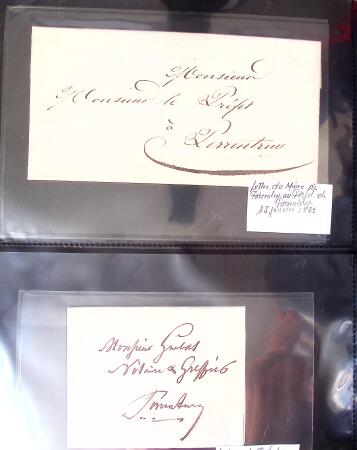 Monsieur
Monsieur le Préfet
à
Porrentruy
Lettre du Maire de
Porrentruy au Préfet de
Porrentruy
15 janvier
Monsieur
Notaire & Greffier
Porrentruy